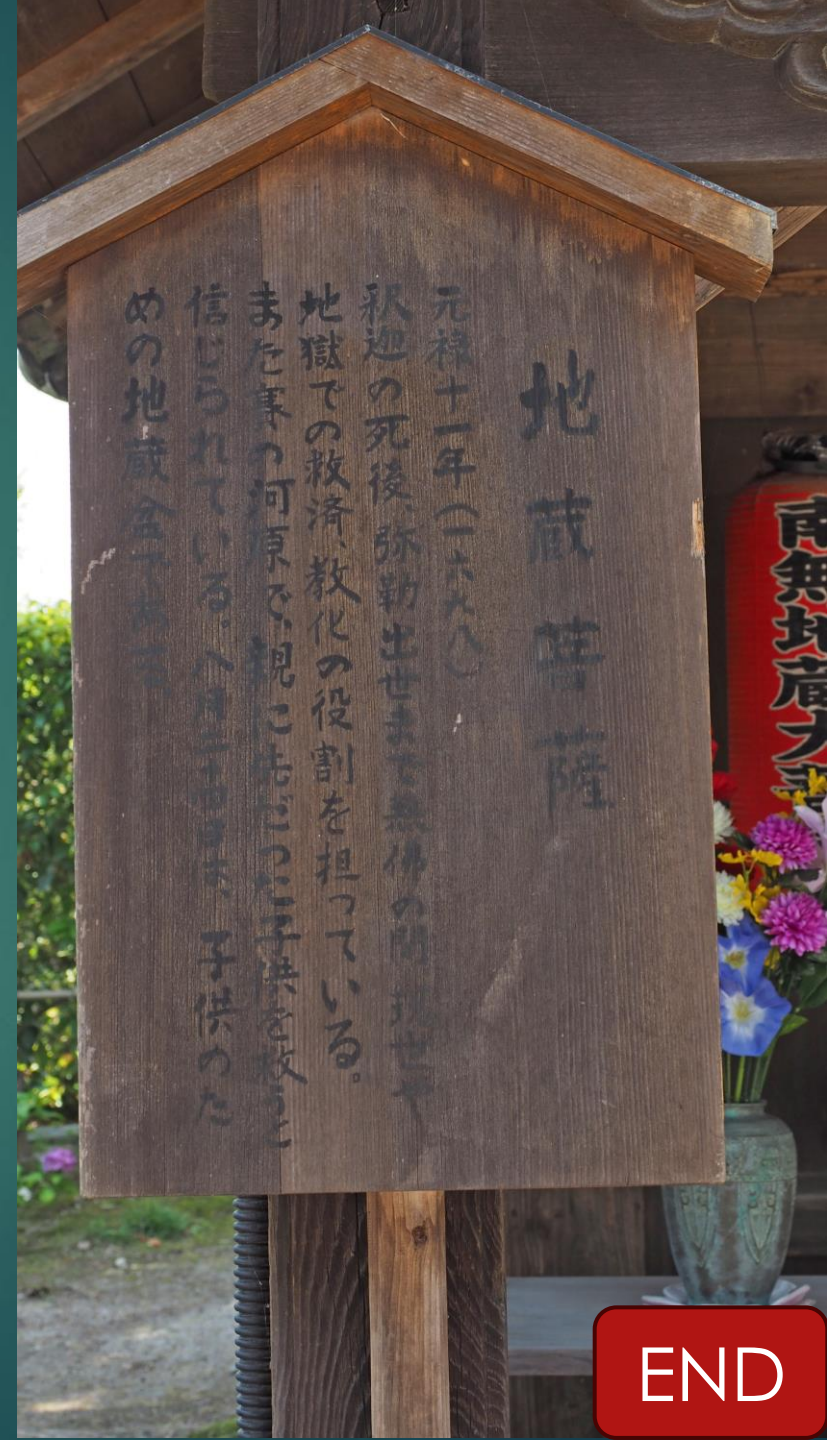 地蔵菩薩
元禄十一年(一六九八)
釈迦の死後、弥勒出世まで無佛の間、現世や
地獄での救済、教化の役割を担っている。
また賽の河原で、親に先だった子供を救うと
信じられている。八月二十四日は、子供のた
めの地蔵盆である。
南無地蔵大菩
END